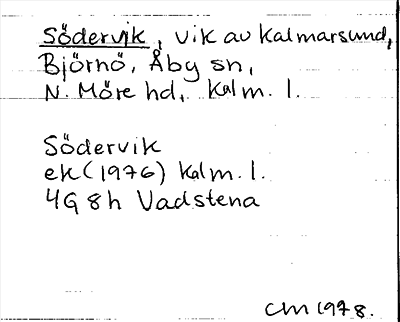 Södervik, vik av Kalmarsund,
Björnö, Åby sn,
N. Möre hd, Kalm. l.
Södervik
ek (1976) Kalm. l.
4G 8h Vadstena
CM 1978.